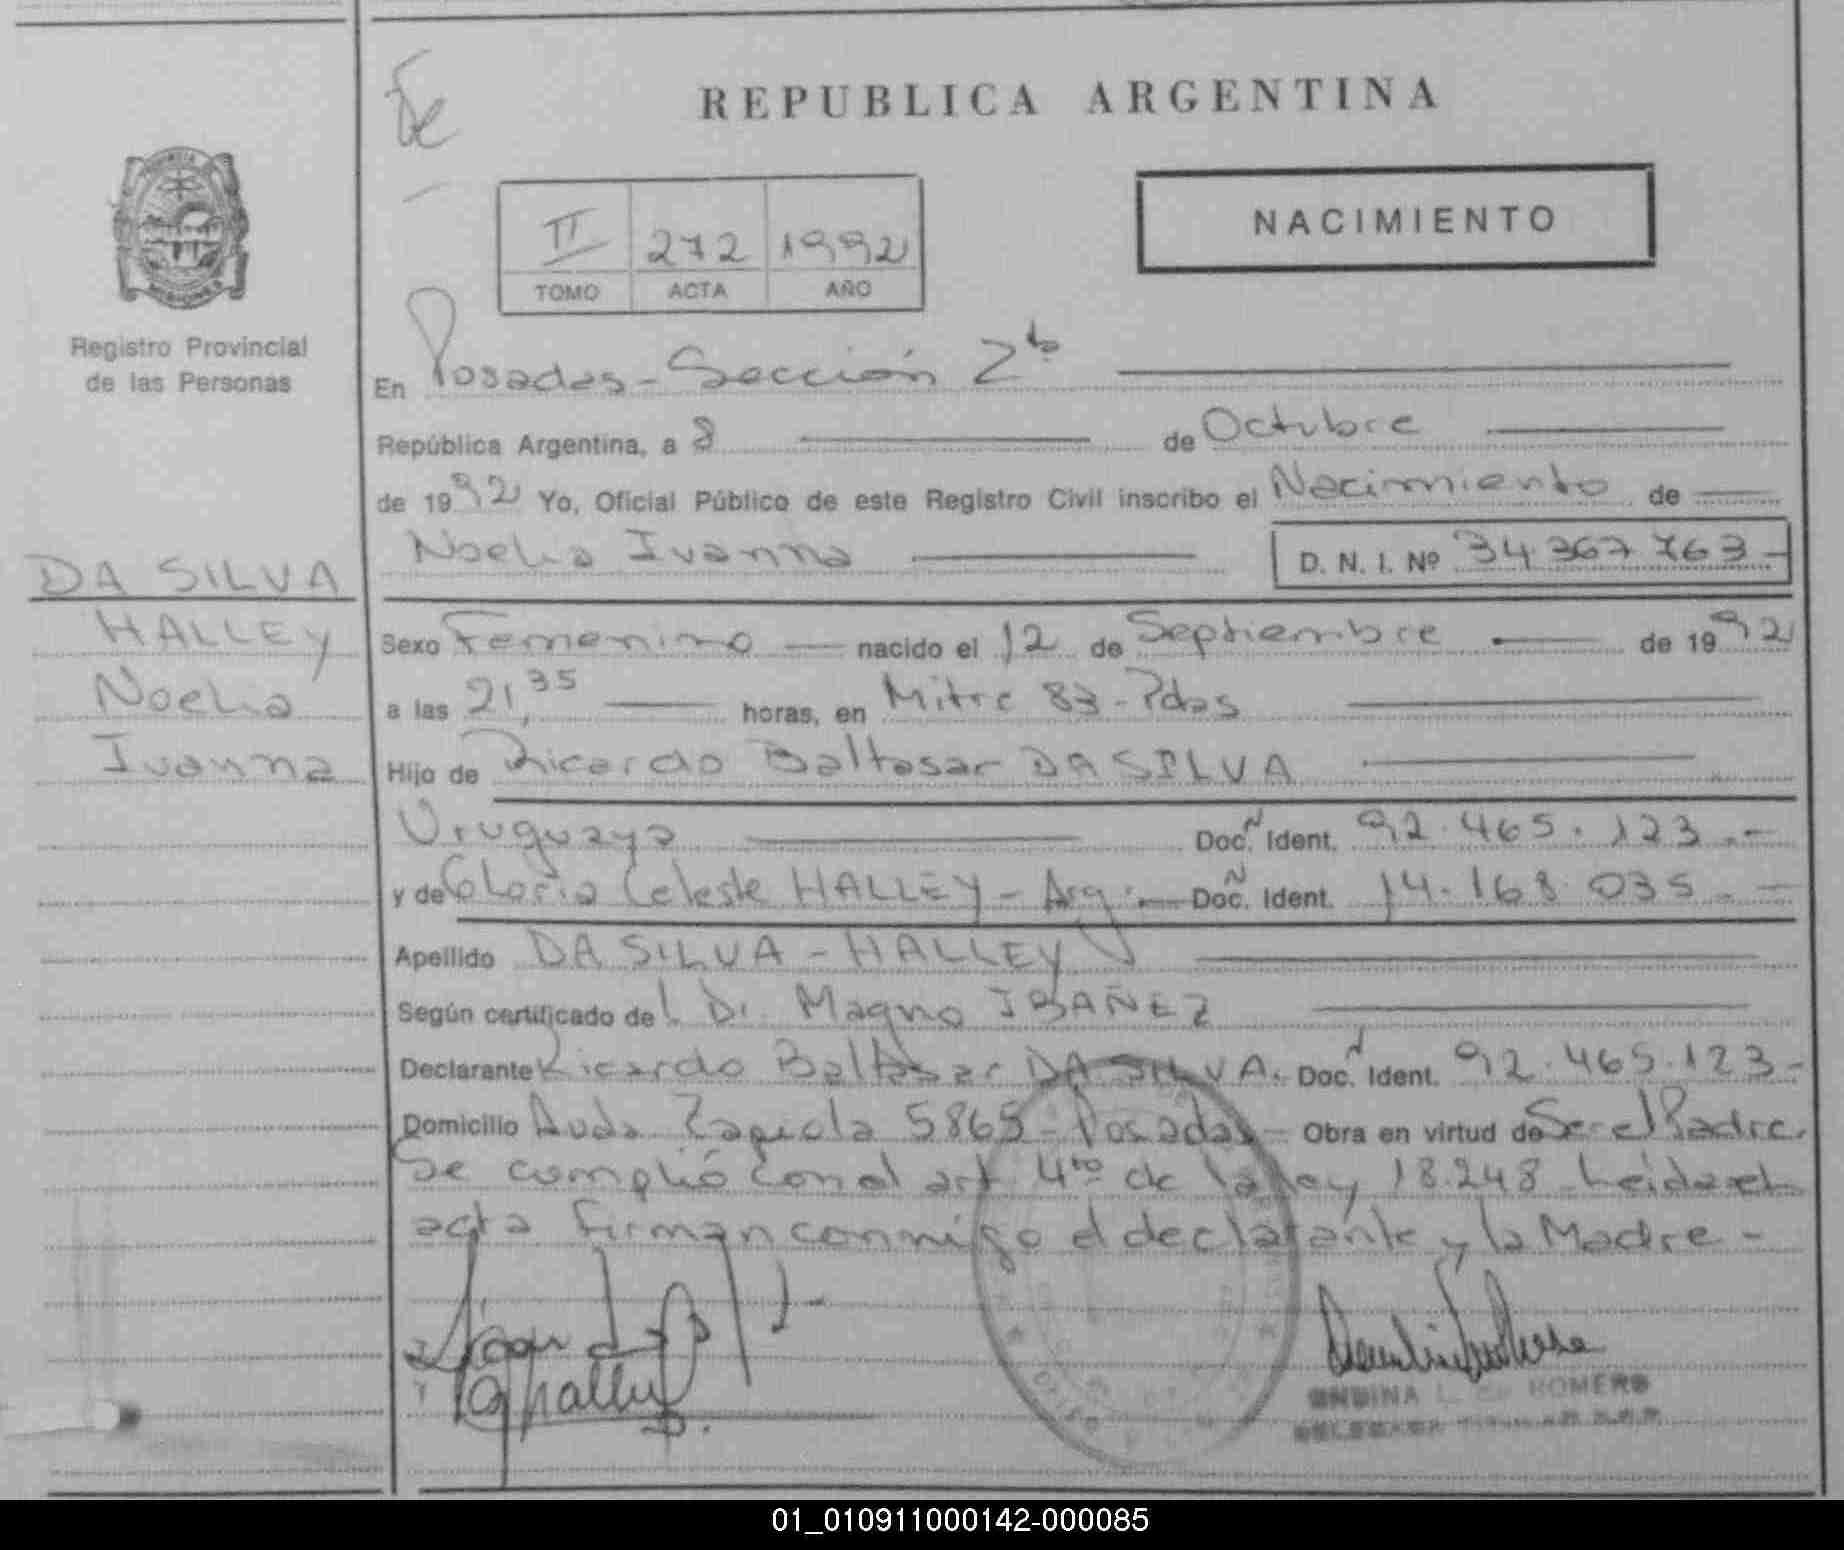 REPUBLICA ARGENTINA
NACIMIENTO
II 272 1992
TOMO ACTA AÑO
MISIONES
Registro Provincial
de las Personas
En Posadas - Sección 2da
República Argentina, a 8 de Octubre
de 1992 Yo, Oficial Público de este Registro Civil inscribo el Nacimiento de
Noelia Ivanna D. N. I. Nº 34.367.763-
DA SILVA
HALLEY
Noelia
Ivanna
Sexo Femenino nacido el 12 de Septiembre de 1992
a las 21,35 horas, en Mitre 83 - Pdas
Hijo de Ricardo Baltasar DA SILVA
Uruguaya Doc. N Ident. 92.465.123.-
y de Gloria Celeste HALLEY - Arg. - Doc. N Ident. 14.168.035.-
Apellido DA SILVA - HALLEY
Según certificado del Dr. Magno IBAÑEZ
Declarante Ricardo Baltasar DA SILVA. Doc. N Ident. 92.465.123-
Domicilio Avda Zapiola 5865 - Posadas - Obra en virtud de Ser el Padre.
Se complió con el art. 4to de la ley 18.248 Leida el
acta firman conmigo el declarante y la Madre -
ROMERO
01_010911000142-000085